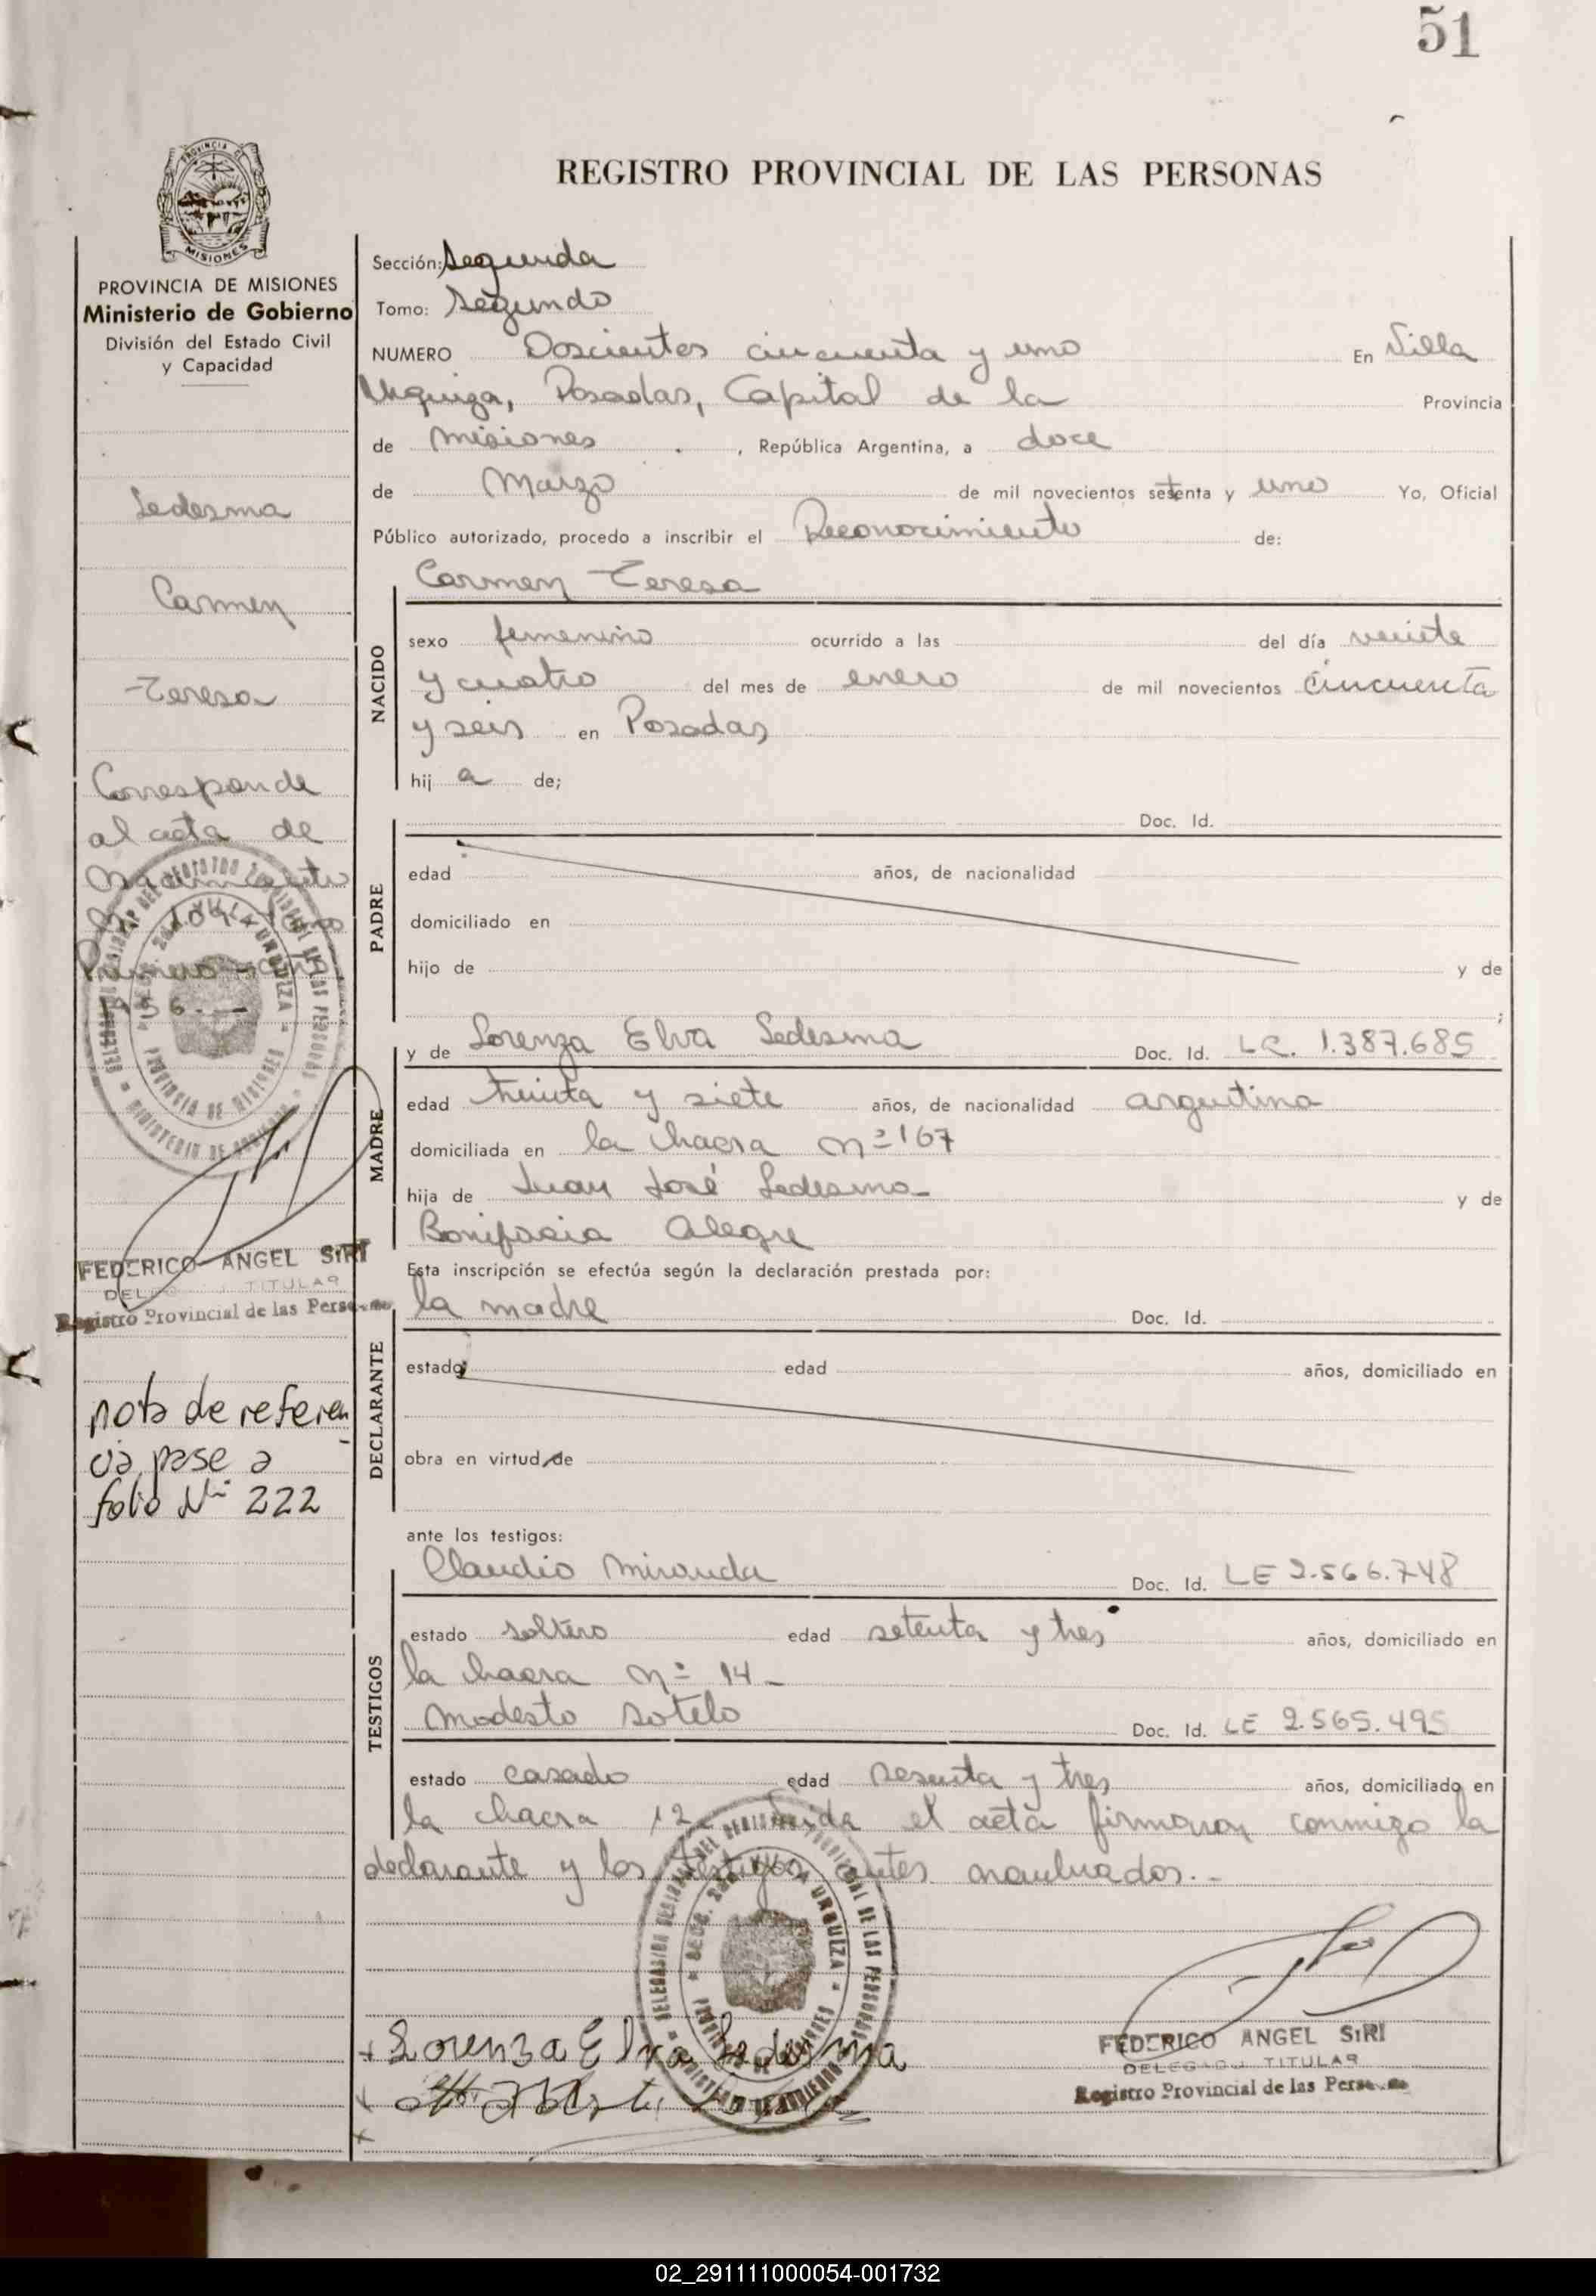 51
REGISTRO PROVINCIAL DE LAS PERSONAS
PROVINCIA DE MISIONES
Ministerio de Gobierno
División del Estado Civil
y Capacidad
Ledesma
Carmen
Teresa
Corresponde
al acta de
Nacimiento
Primero
1956.-
FEDERICO ANGEL SIRI
TITULAR
Registro Provincial de las Personas
nota de referen
cia pase a
folio Nº 222
Sección: Segunda
Tomo: Segundo
NUMERO Doscientos cincuenta y uno En Villa
Urquiza, Posadas, Capital de la Provincia
de Misiones, República Argentina, a doce
de Marzo de mil novecientos setenta y uno Yo, Oficial
Público autorizado, procedo a inscribir el Reconocimiento de:
NACIDO
Carmen Teresa
sexo femenino ocurrido a las del día veinte
y cuatro del mes de enero de mil novecientos cincuenta
y seis en Posadas
hij a de;
PADRE
Doc. Id.
edad años, de nacionalidad
domiciliado en
hijo de y de
;
MADRE
y de Lorenza Elva Ledesma Doc. Id. LC. 1.387.685
edad treinta y siete años, de nacionalidad argentina
domiciliada en la chacra nº 167
hija de Juan José Ledesma y de
Bonifacia Alegre
Esta inscripción se efectúa según la declaración prestada por:
DECLARANTE
la madre Doc. Id.
estado edad años, domiciliado en
obra en virtud de
ante los testigos:
TESTIGOS
Claudio Miranda Doc. Id. LE 2.566.748
estado soltero edad setenta y tres años, domiciliado en
la chacra nº 14 -
Modesto Sotelo Doc. Id. LE 2.565.495
estado casado edad sesenta y tres años, domiciliado en
la chacra 12 leída el acta firmaron conmigo la
declarante y los testigos antes nombrados.-
Lorenza Elva Ledesma
FEDERICO ANGEL SIRI
DELEGADO TITULAR
Registro Provincial de las Personas
02_291111000054-001732